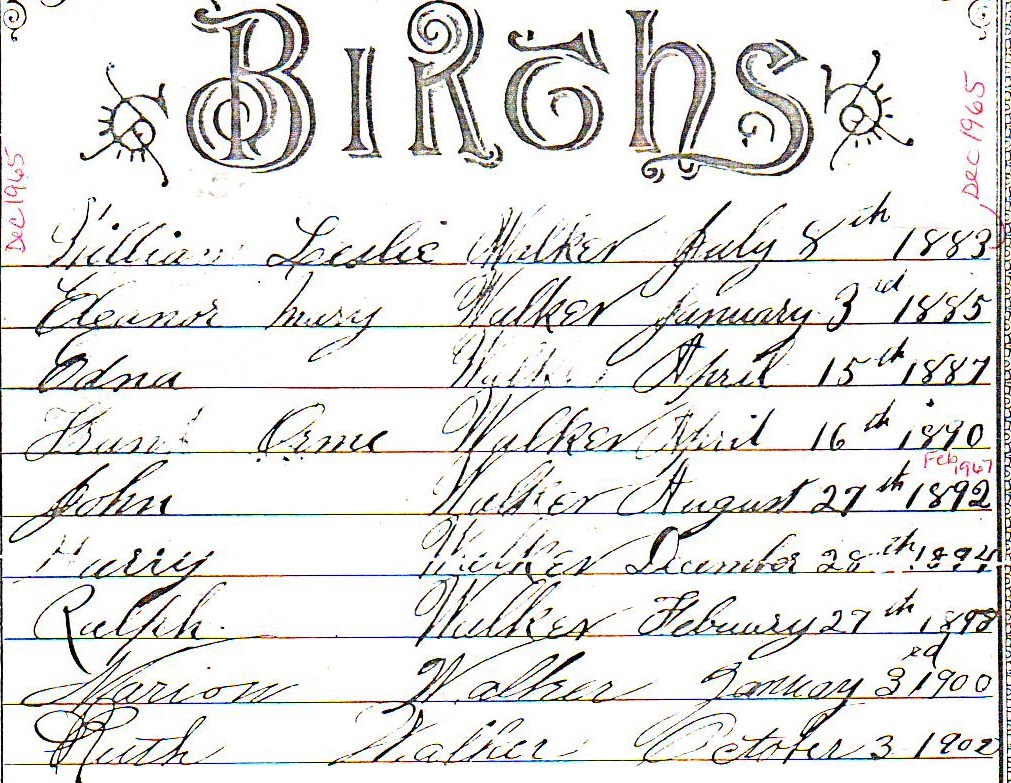 BIRTHS
Dec 1965
Dec 1965
William Leslie Walker July 8th 1883
Eleanor Mary Walker January 3rd 1885
Edna Walker April 15th 1887
Frank Orme Walker April 16th 1890
Feb 1967
John Walker August 27th 1892
Harry Walker December 28th 1894
Ralph Walker Febuary 27th 1898
Marion Walker January 3rd 1900
Ruth Walker October 3 1902